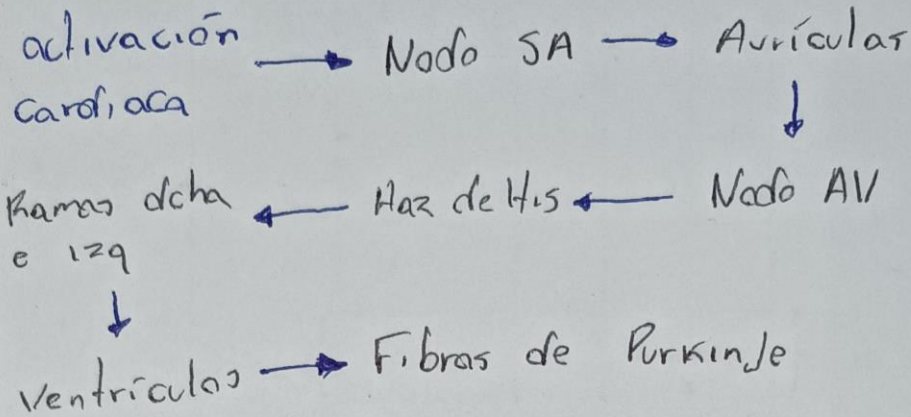 activación
cardiaca → Nodo SA → Aurículas
↓
Ramas dcha ← Haz de His ← Nodo AV
e izq
↓
Ventrículos → Fibras de Purkinje